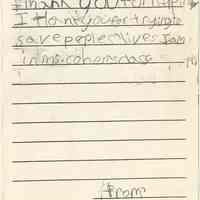 Thank you for helpin
I thank you for trying to
save people's lives I am
in ms. cohen's class
from